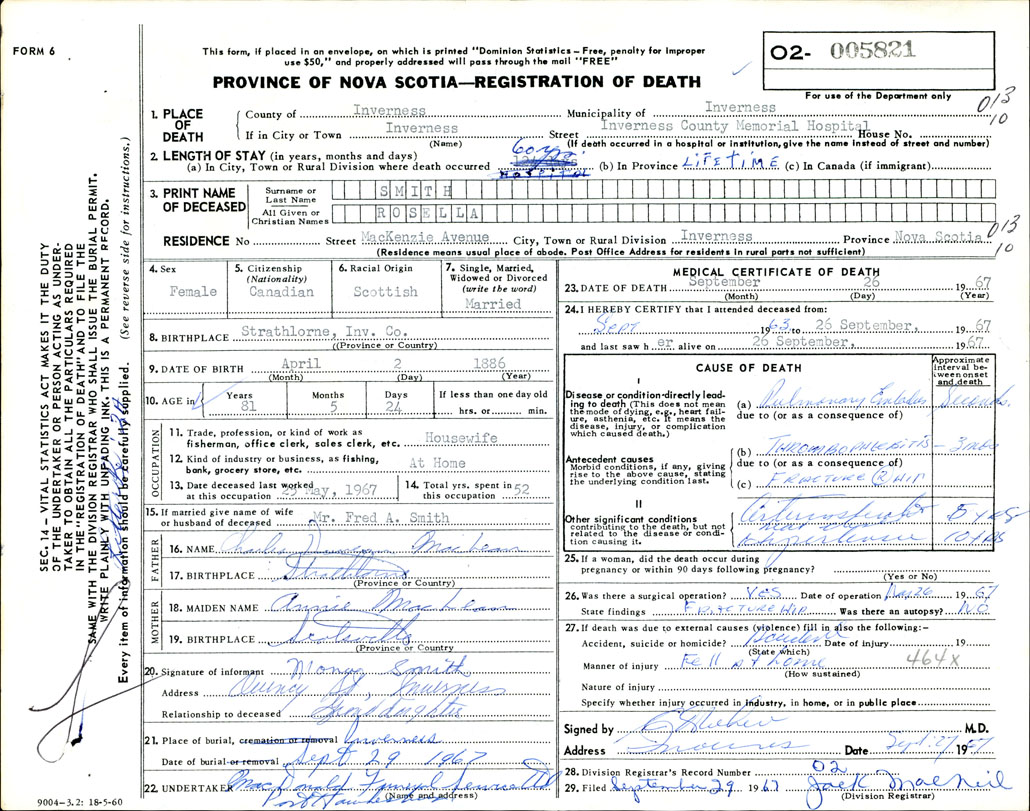 FORM 6
This form, if placed in an envelope, on which is printed "Dominion Statistics – Free, penalty for improper
use $50," and properly addressed will pass through the mail "FREE"
PROVINCE OF NOVA SCOTIA—REGISTRATION OF DEATH
02- 005821
For use of the Department only
013
10
1. PLACE OF DEATH
County of Inverness Municipality of Inverness
If in City or Town Inverness Street Inverness County Memorial Hospital House No.
(Name) (If death occurred in a hospital or institution, give the name instead of street and number)
2. LENGTH OF STAY (in years, months and days)
(a) In City, Town or Rural Division where death occurred 60 yrs (b) In Province LIFETIME (c) In Canada (if immigrant)
HOSPITAL
3. PRINT NAME OF DECEASED
Surname or Last Name SMITH
All Given or Christian Names ROSELLA
013
10
RESIDENCE No Street MacKenzie Avenue City, Town or Rural Division Inverness Province Nova Scotia
(Residence means usual place of abode. Post Office Address for residents in rural parts not sufficient)
4. Sex Female
5. Citizenship (Nationality) Canadian
6. Racial Origin Scottish
7. Single, Married, Widowed or Divorced (write the word) Married
8. BIRTHPLACE Strathlorne, Inv. Co.
((Province or Country)
9. DATE OF BIRTH April 2 1886
(Month) (Day) (Year)
10. AGE in Years 81 Months 5 Days 24 If less than one day old hrs. or min.
OCCUPATION
11. Trade, profession, or kind of work as fisherman, office clerk, sales clerk, etc. Housewife
12. Kind of industry or business, as fishing, bank, grocery store, etc. At Home
13. Date deceased last worked at this occupation 25 May, 1967
14. Total yrs. spent in this occupation 52
15. If married give name of wife or husband of deceased Mr. Fred A. Smith
FATHER
16. NAME Charles MacLean
17. BIRTHPLACE Strathlorne
(Province or Country)
MOTHER
18. MAIDEN NAME Annie MacLean
19. BIRTHPLACE Scotsville
(Province or Country)
20. Signature of informant Nancy Smith
Address Quincy St, Inverness
Relationship to deceased Granddaughter
21. Place of burial, cremation or removal Inverness
Date of burial or removal Sept. 29 1967
22. UNDERTAKER MacDonald Funeral Service Ltd
Port Hawkesbury
(Name and address)
9004–3.2: 18-5-60
MEDICAL CERTIFICATE OF DEATH
23. DATE OF DEATH September 26 1967
(Month) (Day) (Year)
24. I HEREBY CERTIFY that I attended deceased from:
Sept 1963 to 26 September, 1967
and last saw h er alive on 26 September, 1967
CAUSE OF DEATH
Approximate interval between onset and death
I
Disease or condition directly leading to death (This does not mean the mode of dying, e.g., heart failure, asthenia, etc. It means the disease, injury, or complication which caused death.)
(a) Pulmonary Embolus Seconds
due to (or as a consequence of)
(b) THROMBOPHLEBITIS - 3 mos
Antecedent causes
Morbid conditions, if any, giving rise to the above cause, stating the underlying condition last.
due to (or as a consequence of)
(c) FRACTURE (R) HIP
II
Other significant conditions contributing to the death, but not related to the disease or condition causing it.
Arteriosclerotic 5 yrs
heart disease
Hypertension 10 yrs
25. If a woman, did the death occur during pregnancy or within 90 days following pregnancy?
(Yes or No)
26. Was there a surgical operation? YES Date of operation May 26 1967
State findings FRACTURE HIP Was there an autopsy? NO
27. If death was due to external causes (violence) fill in also the following:–
Accident, suicide or homicide? Accident Date of injury 19
(State which)
Manner of injury Fell at home 464X
(How sustained)
Nature of injury
Specify whether injury occurred in industry, in home, or in public place
Signed by M.D.
Address Inverness Date Sept. 27 1967
28. Division Registrar's Record Number 02
29. Filed September 29 1967 Jack MacNeil
(Division Registrar)
SEC. 14 – VITAL STATISTICS ACT MAKES IT THE DUTY
OF THE UNDERTAKER OR PERSON ACTING AS UNDER-
TAKER TO OBTAIN ALL THE PARTICULARS REQUIRED
IN THE "REGISTRATION OF DEATH" AND TO FILE THE
SAME WITH THE DIVISION REGISTRAR WHO SHALL ISSUE THE BURIAL PERMIT.
WRITE PLAINLY WITH UNFADING INK. THIS IS A PERMANENT RECORD.
Every item of information should be carefully supplied. (See reverse side for instructions.)